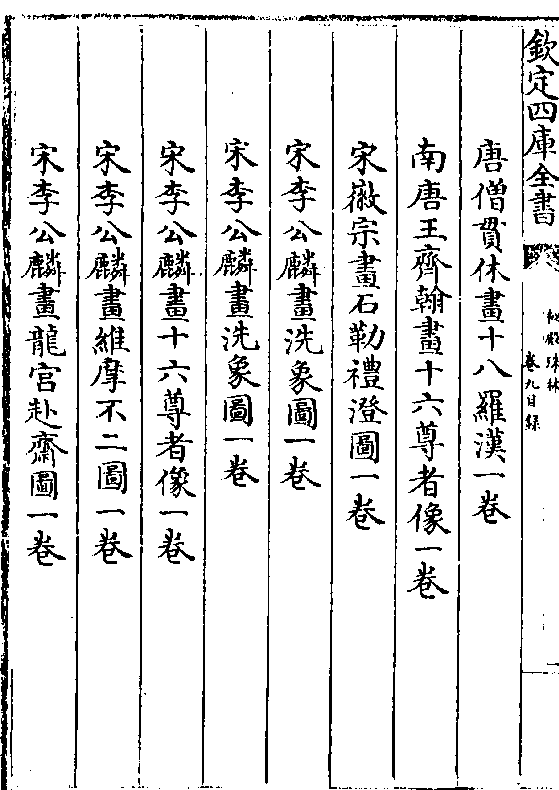 欽定四庫全書
秘殿珠林
卷九目録
唐僧貫休畫十八羅漢一卷
南唐王齊翰畫十六尊者像一卷
宋徽宗畫石勒禮澄圖一卷
宋李公麟畫洗象圖一卷
宋李公麟畫洗象圖一卷
宋李公麟畫十六尊者像一卷
宋李公麟畫維摩不二圖一卷
宋李公麟畫龍宮赴齋圖一卷